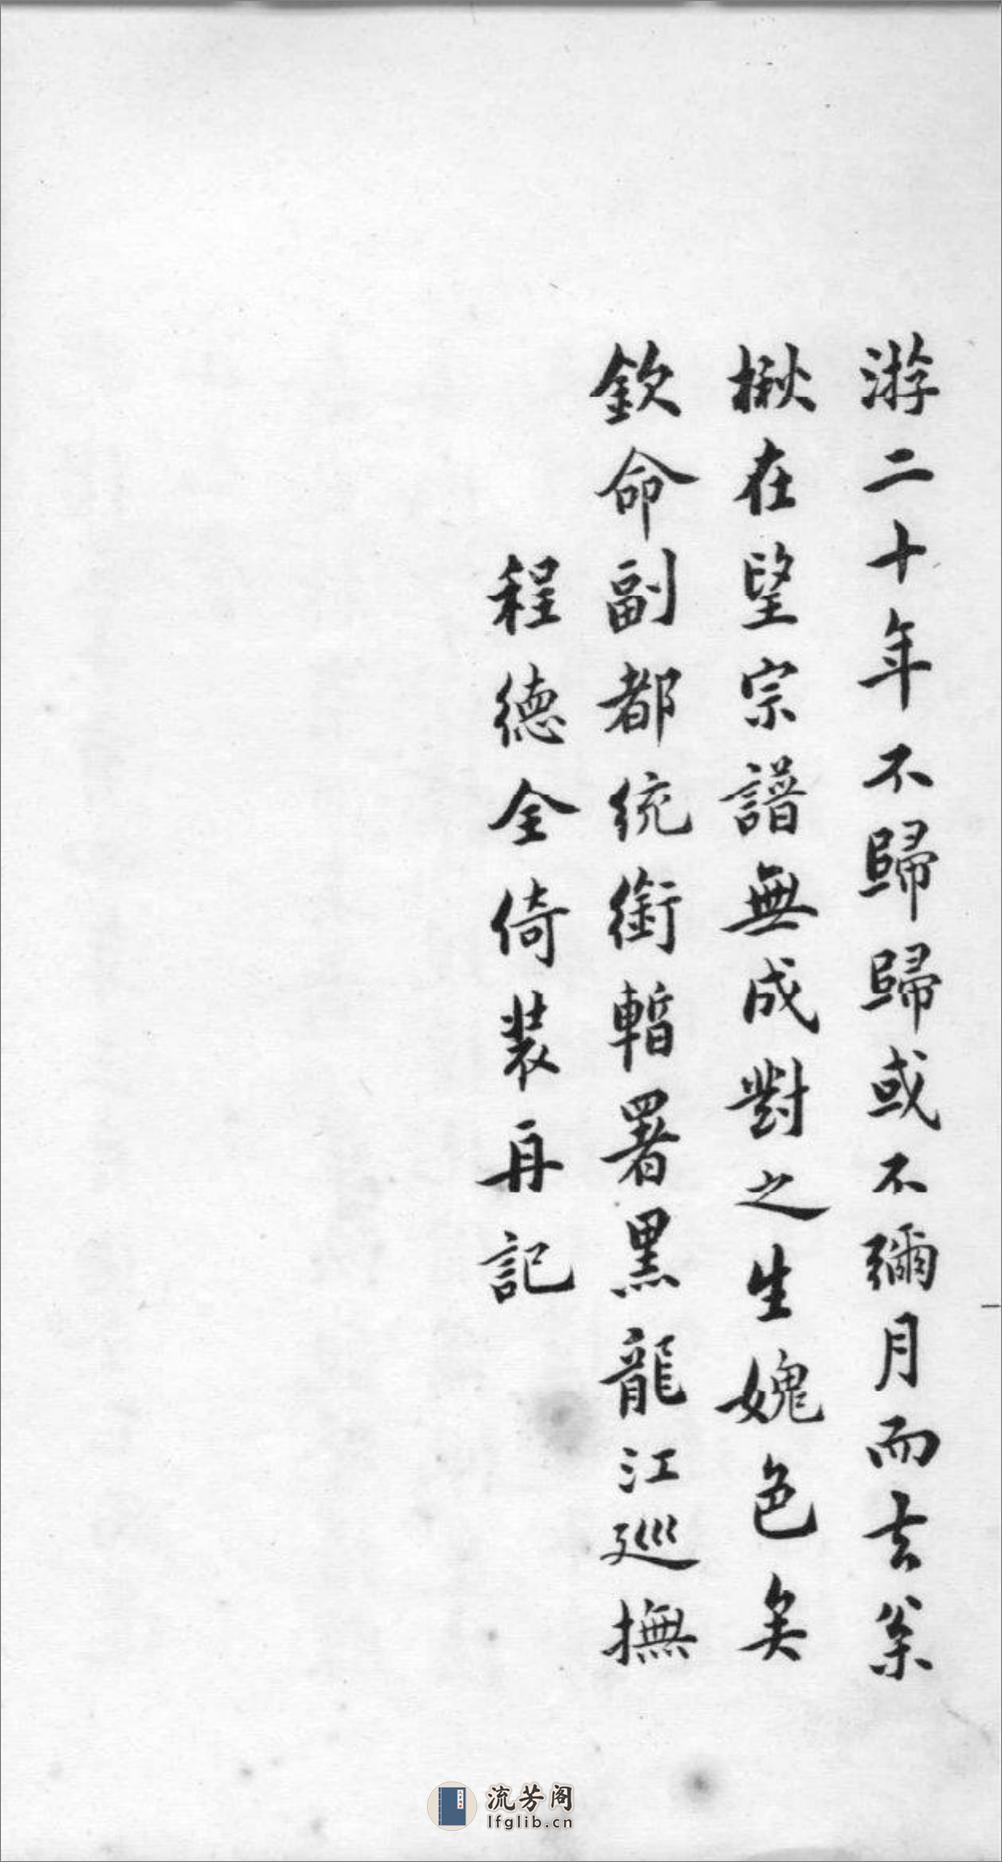 游二十年不歸歸或不彌月而去桊
楸在望宗譜無成對之生媿色矣
欽命副都統銜暫署黑龍江巡撫
程德全倚裝再記
流芳阁
lfglib.cn